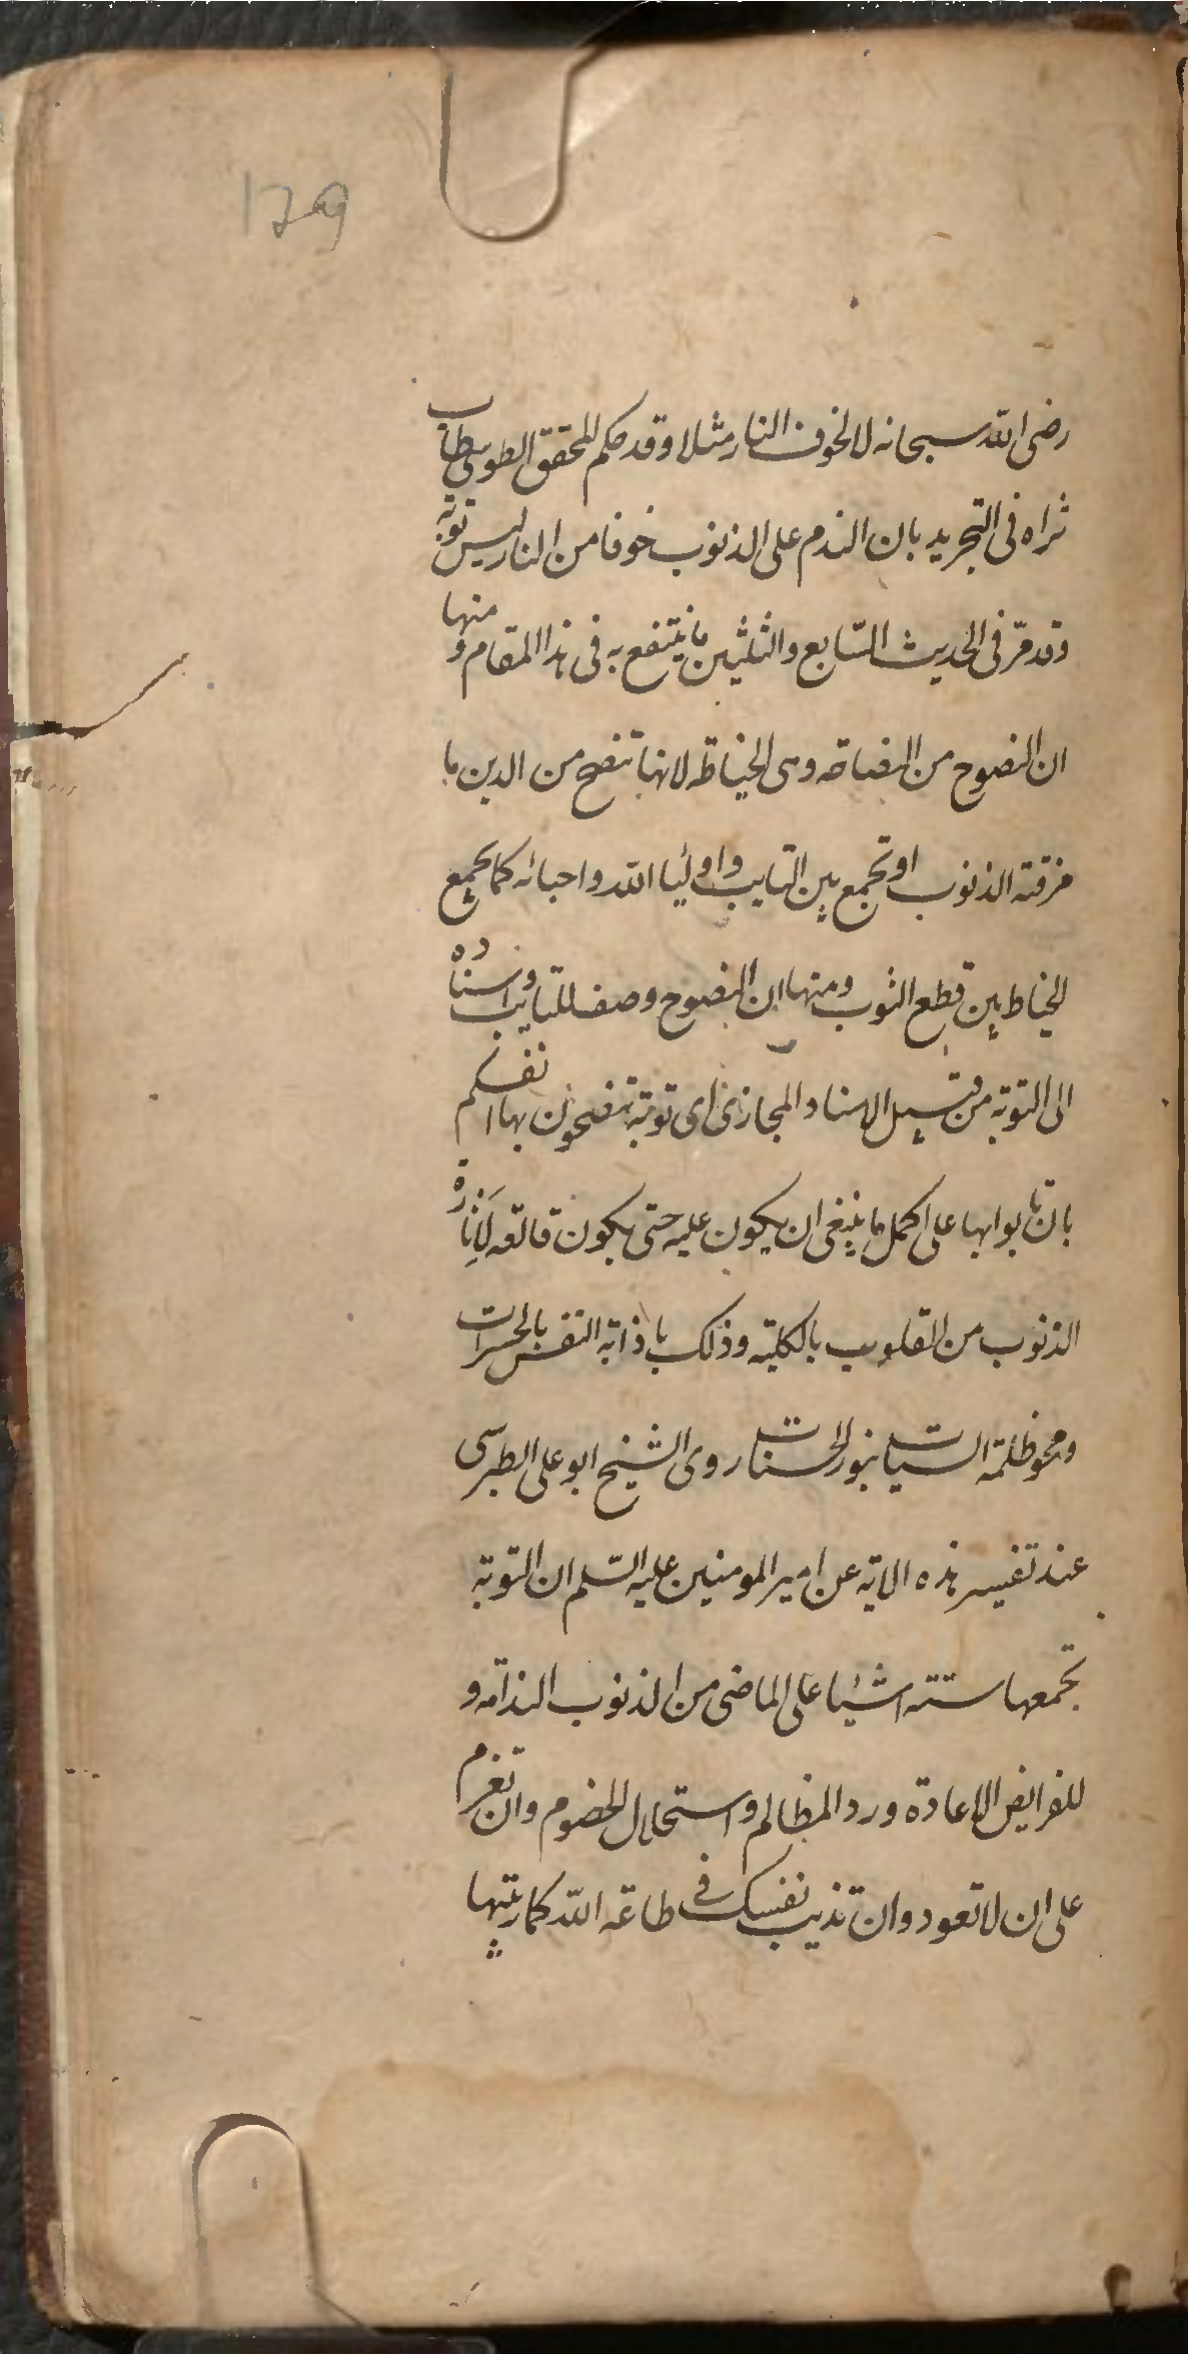 179
رضى الله سبحانه لا لخوف النار مثلا وقد حكم المحقق الطوسى طاب
ثراه فى التجريد بان الندم على الذنوب خوفا من النار ليس توبة
وقد مرّ فى الحديث السّابع والثلثين ما ينتفع به فى هذا المقام ومنها
ان النصوح من النصاحه وهى الخياطه لانها تنصح من الدين ما
مزقته الذنوب او تجمع بين التايب واوليا الله واحبائه كما يجمع
الخياط بين قطع الثوب ومنها ان النصوح وصف للتايب واسناده
الى التوبة من قبيل الاسناد المجازى اى توبة تنصحون بها انفسكم
بان تابوا بها على اكمل ما ينبغى ان يكون عليه حتى يكون قالعه لاثارة
الذنوب من القلوب بالكليّه وذلك باذابة النفس بالحسرات
ومحو ظلمة السيات بنور الحسنات روى الشيخ ابو على الطبرسى
عند تفسير هذه الاية عن امير المومنين عليه السّلم ان التوبة
تجمعها ستته اشيا على الماضى من الذنوب الندامه و
للفرايض الاعادة ورد المظالم واستحلال الخصوم وان تعزم
على ان لا تعود وان تذيب نفسك فى طاعة الله كما ربيتها